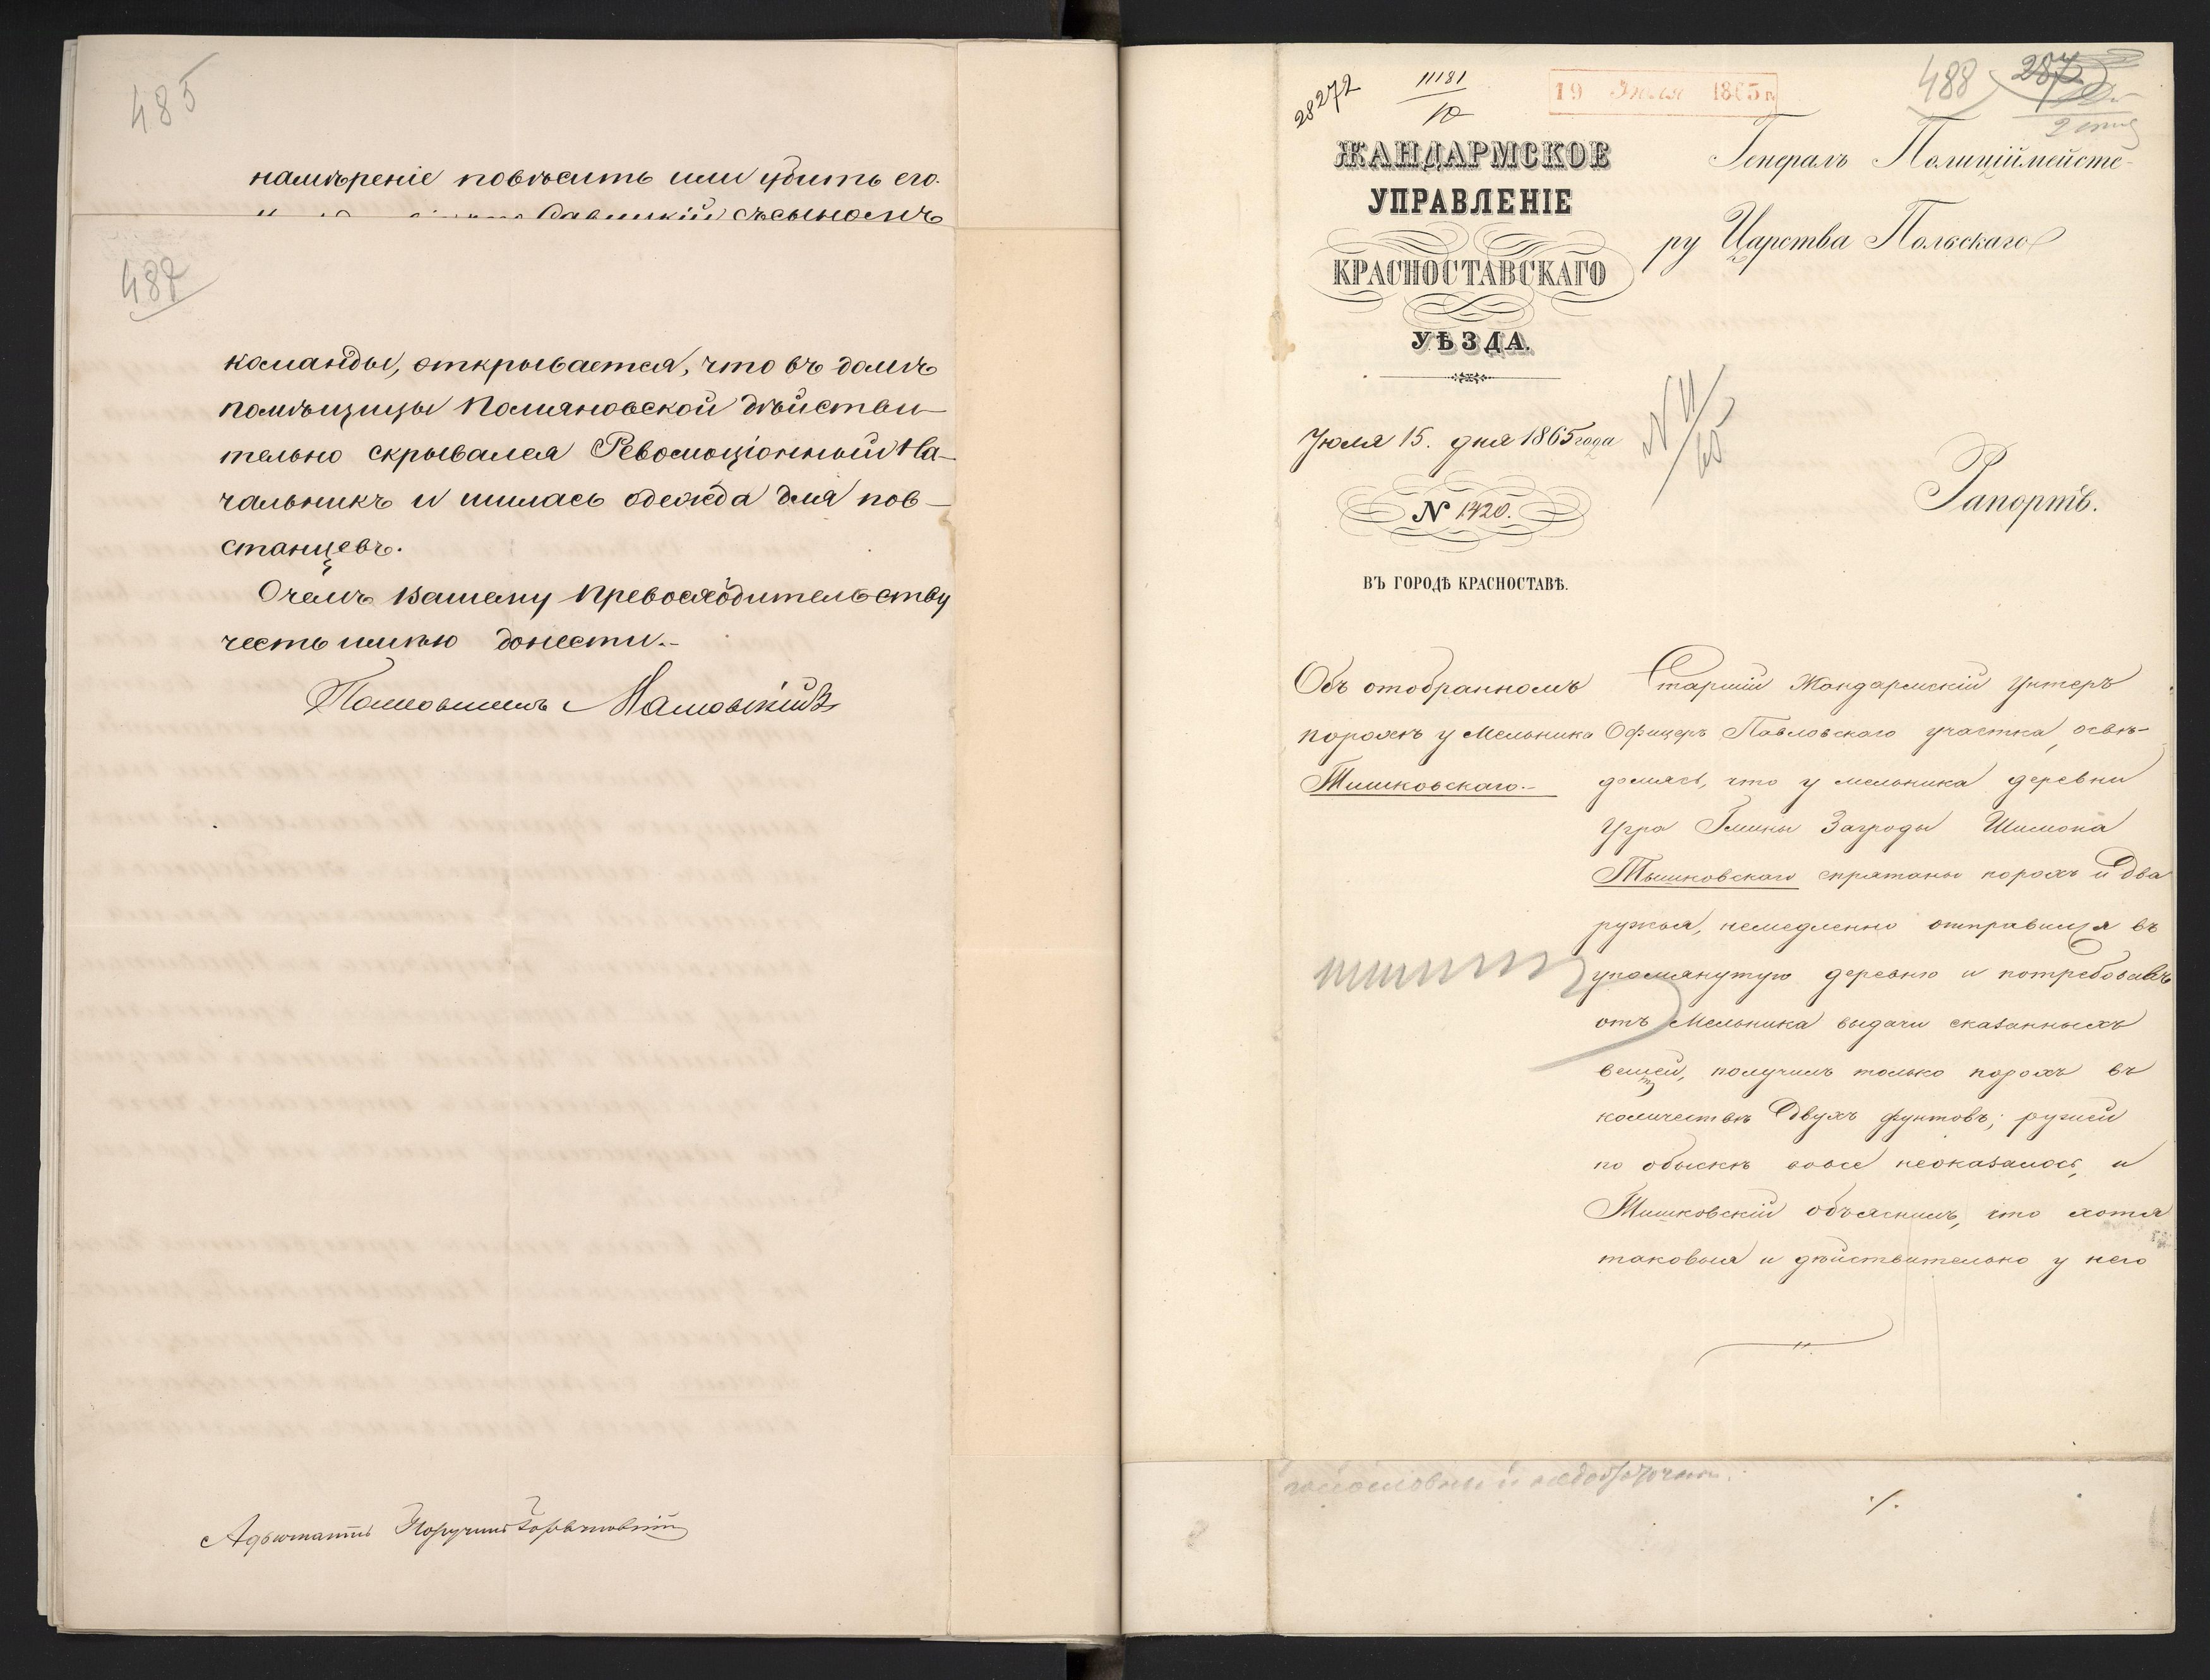 485
намѣреніе повѣсить или убить его.
съ сыномъ
487
команды, открывается, что въ домѣ
помѣщицы Помяновской дѣйстви-
тельно скрывался Революціонный На-
чальникъ и шилась одежда для пов-
станцевъ.
О чемъ Вашему Превосходительству
честь имѣю донести.-
Полковникъ
Адъютантъ Поручикъ
28272
11181
10
19 Іюля 1865 г.
488
287
ЖАНДАРМСКОЕ
УПРАВЛЕНІЕ
КРАСНОСТАВСКАГО
УѢЗДА.
Генералъ Полиціймейсте-
ру Царства Польскаго
Іюля 15. дня 1865 года
N 1420.
ВЪ ГОРОДѢ КРАСНОСТАВѢ.
Рапортъ.
Объ отобранномъ
порохѣ у Мельника
Тишковскаго.-
Старшій Жандармскій Унтеръ
Офицеръ Павловскаго участка, освѣ-
домясь, что у мельника деревни
Угра Гмины Загроды Шимона
Тышковскаго спрятаны порохъ и два
ружья, немедленно отправился въ
упомянутую деревню и потребовавъ
отъ Мельника выдачи сказанныхъ
вещей, получилъ только порохъ въ
количествѣ двухъ фунтовъ; ружей
по обыскѣ вовсе неоказалось, и
Тишковскій объяснилъ, что хотя
таковыя и дѣйствительно у него
./.